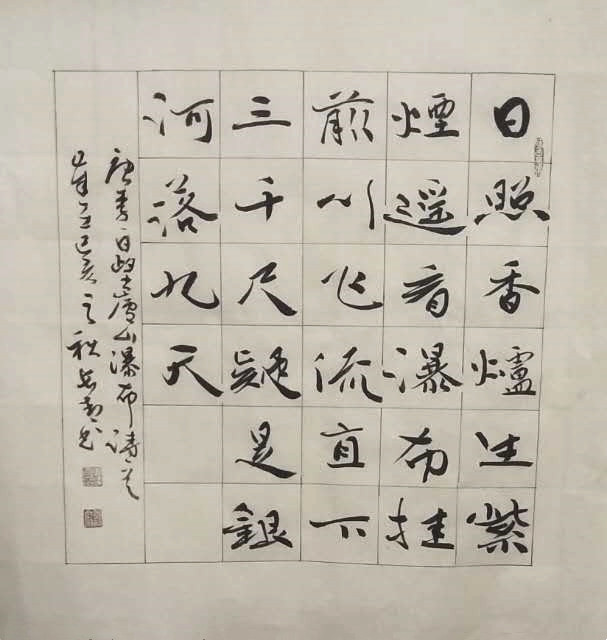 日照香爐生紫
煙遥看瀑布挂
前川飞流直下
三千尺疑是銀
河落九天
唐李白望廬山瀑布诗
己亥之秋